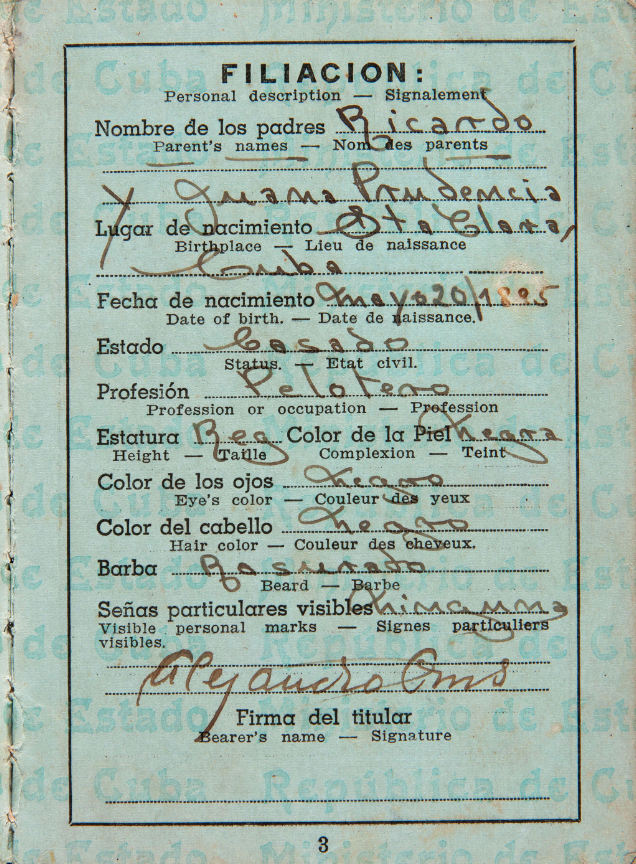 FILIACION:
Personal description — Signalement
Nombre de los padres Ricardo
Parent's names — Nom des parents
Y Juana Prudencia
Lugar de nacimiento Sta Clara,
Birthplace — Lieu de naissance
Cuba
Fecha de nacimiento mayo 20/1895
Date of birth. — Date de naissance.
Estado Casado
Status. — Etat civil.
Profesión Pelotero
Profession or occupation — Profession
Estatura Reg Color de la Piel negra
Height — Taille Complexion — Teint
Color de los ojos negro
Eye's color — Couleur des yeux
Color del cabello negro
Hair color — Couleur des cheveux.
Barba Rasurado
Beard — Barbe
Señas particulares visibles ninguna
Visible personal marks — Signes particuliers
visibles.
Alejandro Oms
Firma del titular
Bearer's name — Signature
3